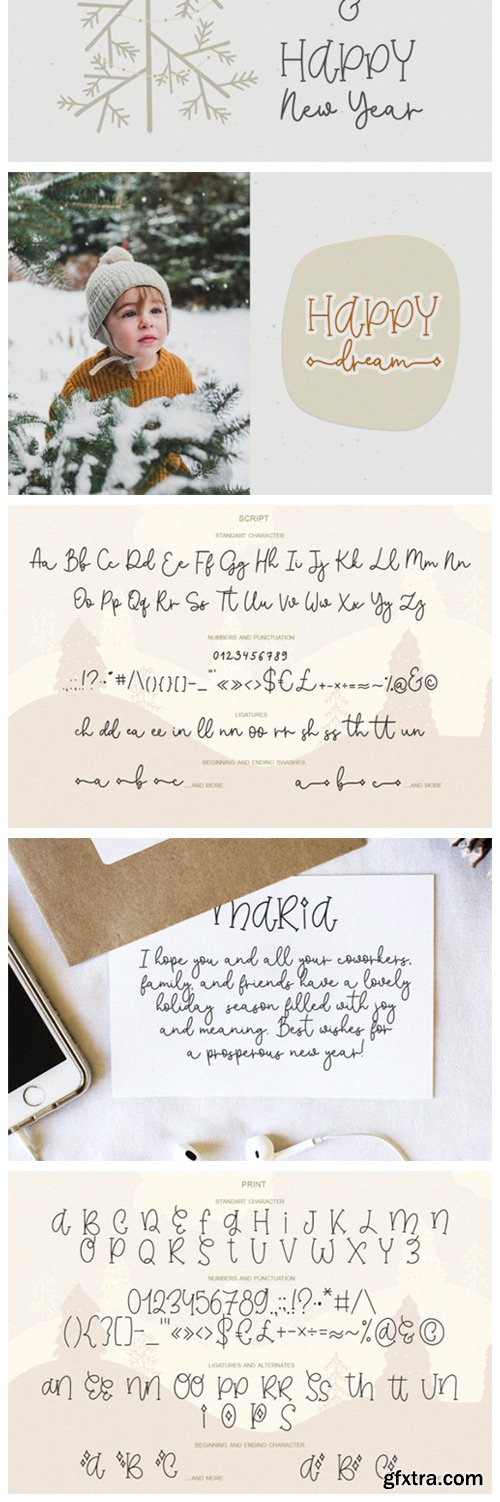 &
Happy
New Year
Happy
dream
SCRIPT
STANDART CHARACTER
Aa Bb Cc Dd Ee Ff Gg Hh Ii Jj Kk Ll Mm Nn
Oo Pp Qq Rr Ss Tt Uu Vv Ww Xx Yy Zz
NUMBERS AND PUNCTUATION
0123456789
.,:;!?··*#/\(){}[]-_"'«»<>$€£+-×÷=≈~%@&©
LIGATURES
ch dd ea ee in ll nn oo rr sh ss th tt un
BEGINNING AND ENDING SWASHES
a b c ...AND MORE a b c ...AND MORE
MARIA
I hope you and all your coworkers,
family, and friends have a lovely
holiday season filled with joy
and meaning. Best wishes for
a prosperous new year!
PRINT
STANDART CHARACTER
a B C D E f G H i J K L M N
O P Q R S t U V W X Y Z
NUMBERS AND PUNCTUATION
0123456789.,:;!?··*#/\
(){}[]-_'"«»<>$€£+-×÷=≈~%@&©
LIGATURES AND ALTERNATES
an EE nn OO PP RR SS th tt UN
i O P S
BEGINNING AND ENDING CHARACTER
a B C ...AND MORE a B C
gfxtra.com